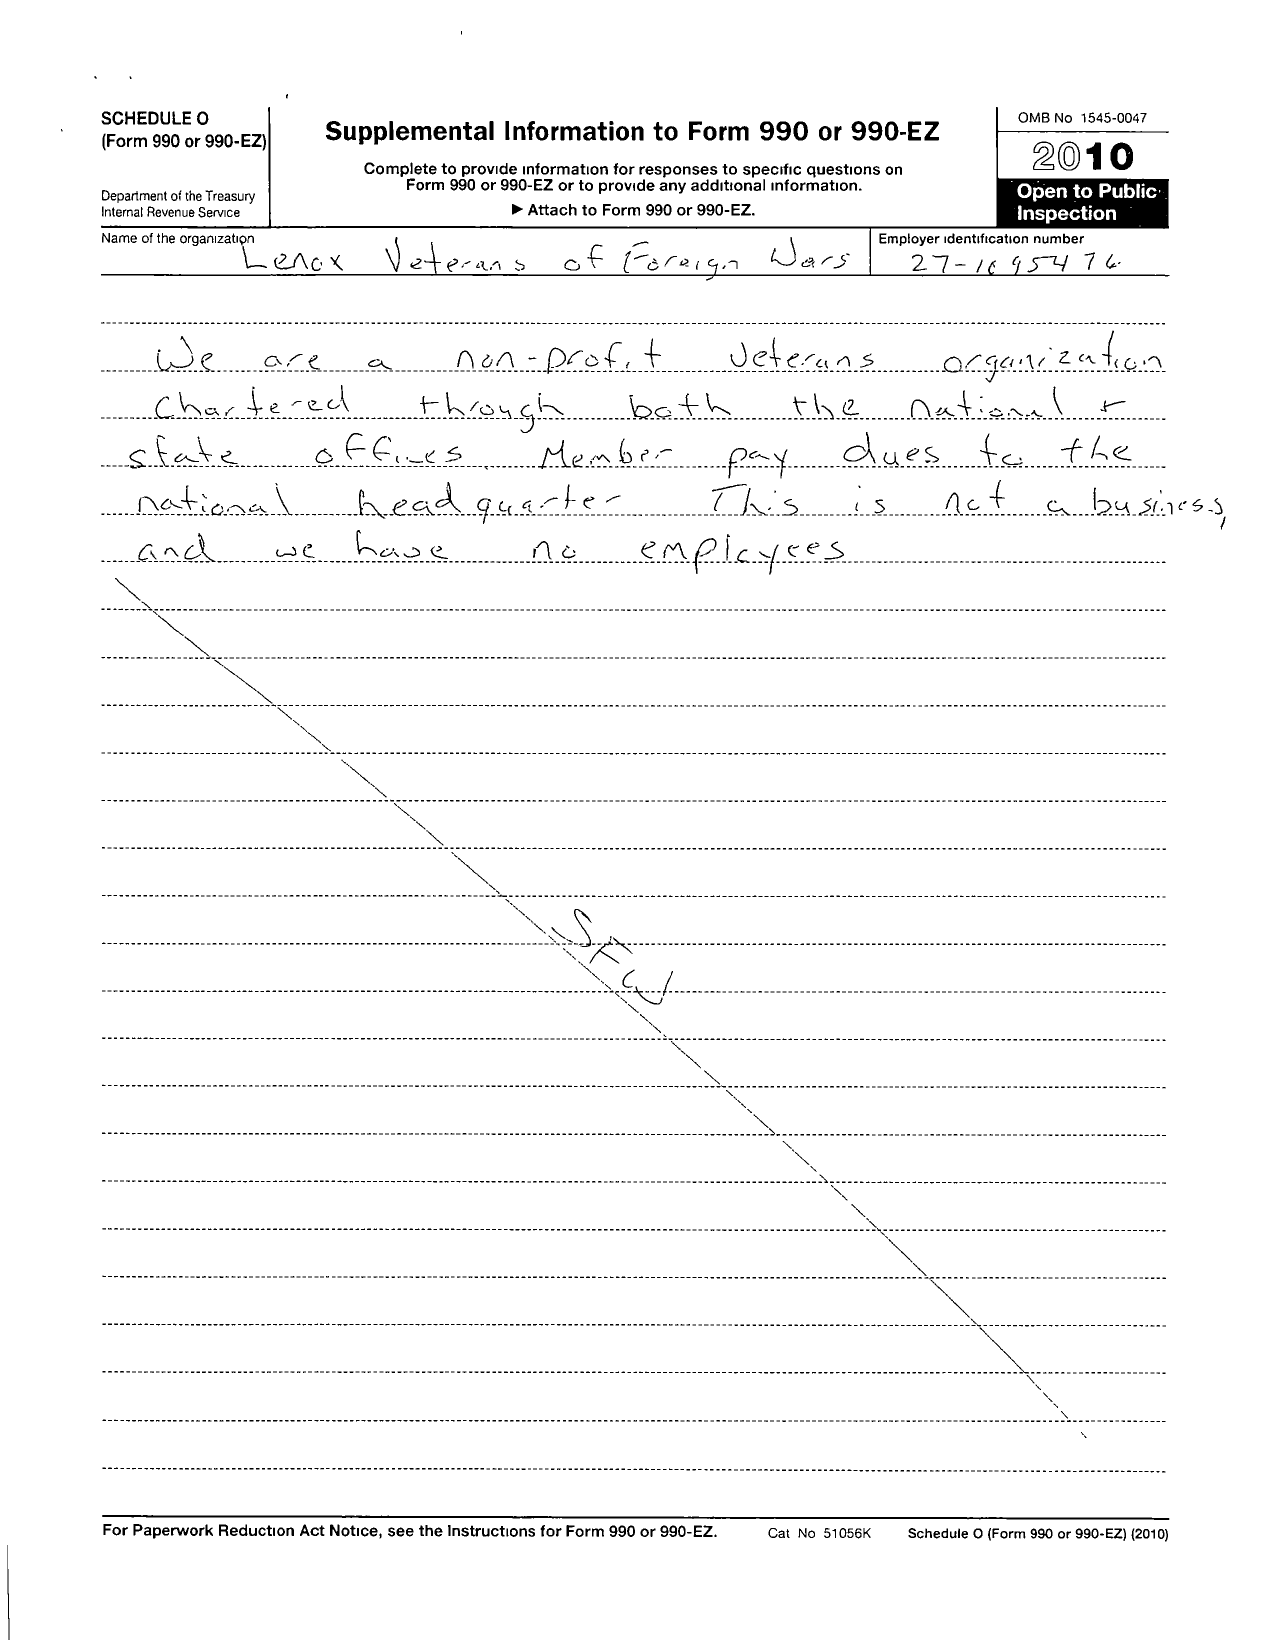 SCHEDULE O
(Form 990 or 990-EZ)
Department of the Treasury
Internal Revenue Service
Supplemental Information to Form 990 or 990-EZ
Complete to provide information for responses to specific questions on
Form 990 or 990-EZ or to provide any additional information.
▶ Attach to Form 990 or 990-EZ.
OMB No 1545-0047
2010
Open to Public
Inspection
Name of the organization
Lenox Veterans of Foreign Wars
Employer identification number
27-1695476
We are a non-profit veterans organization
chartered through both the national +
state offices. Member pay dues to the
national headquarter This is not a business,
and we have no employees
SFW
For Paperwork Reduction Act Notice, see the Instructions for Form 990 or 990-EZ.
Cat No 51056K
Schedule O (Form 990 or 990-EZ) (2010)